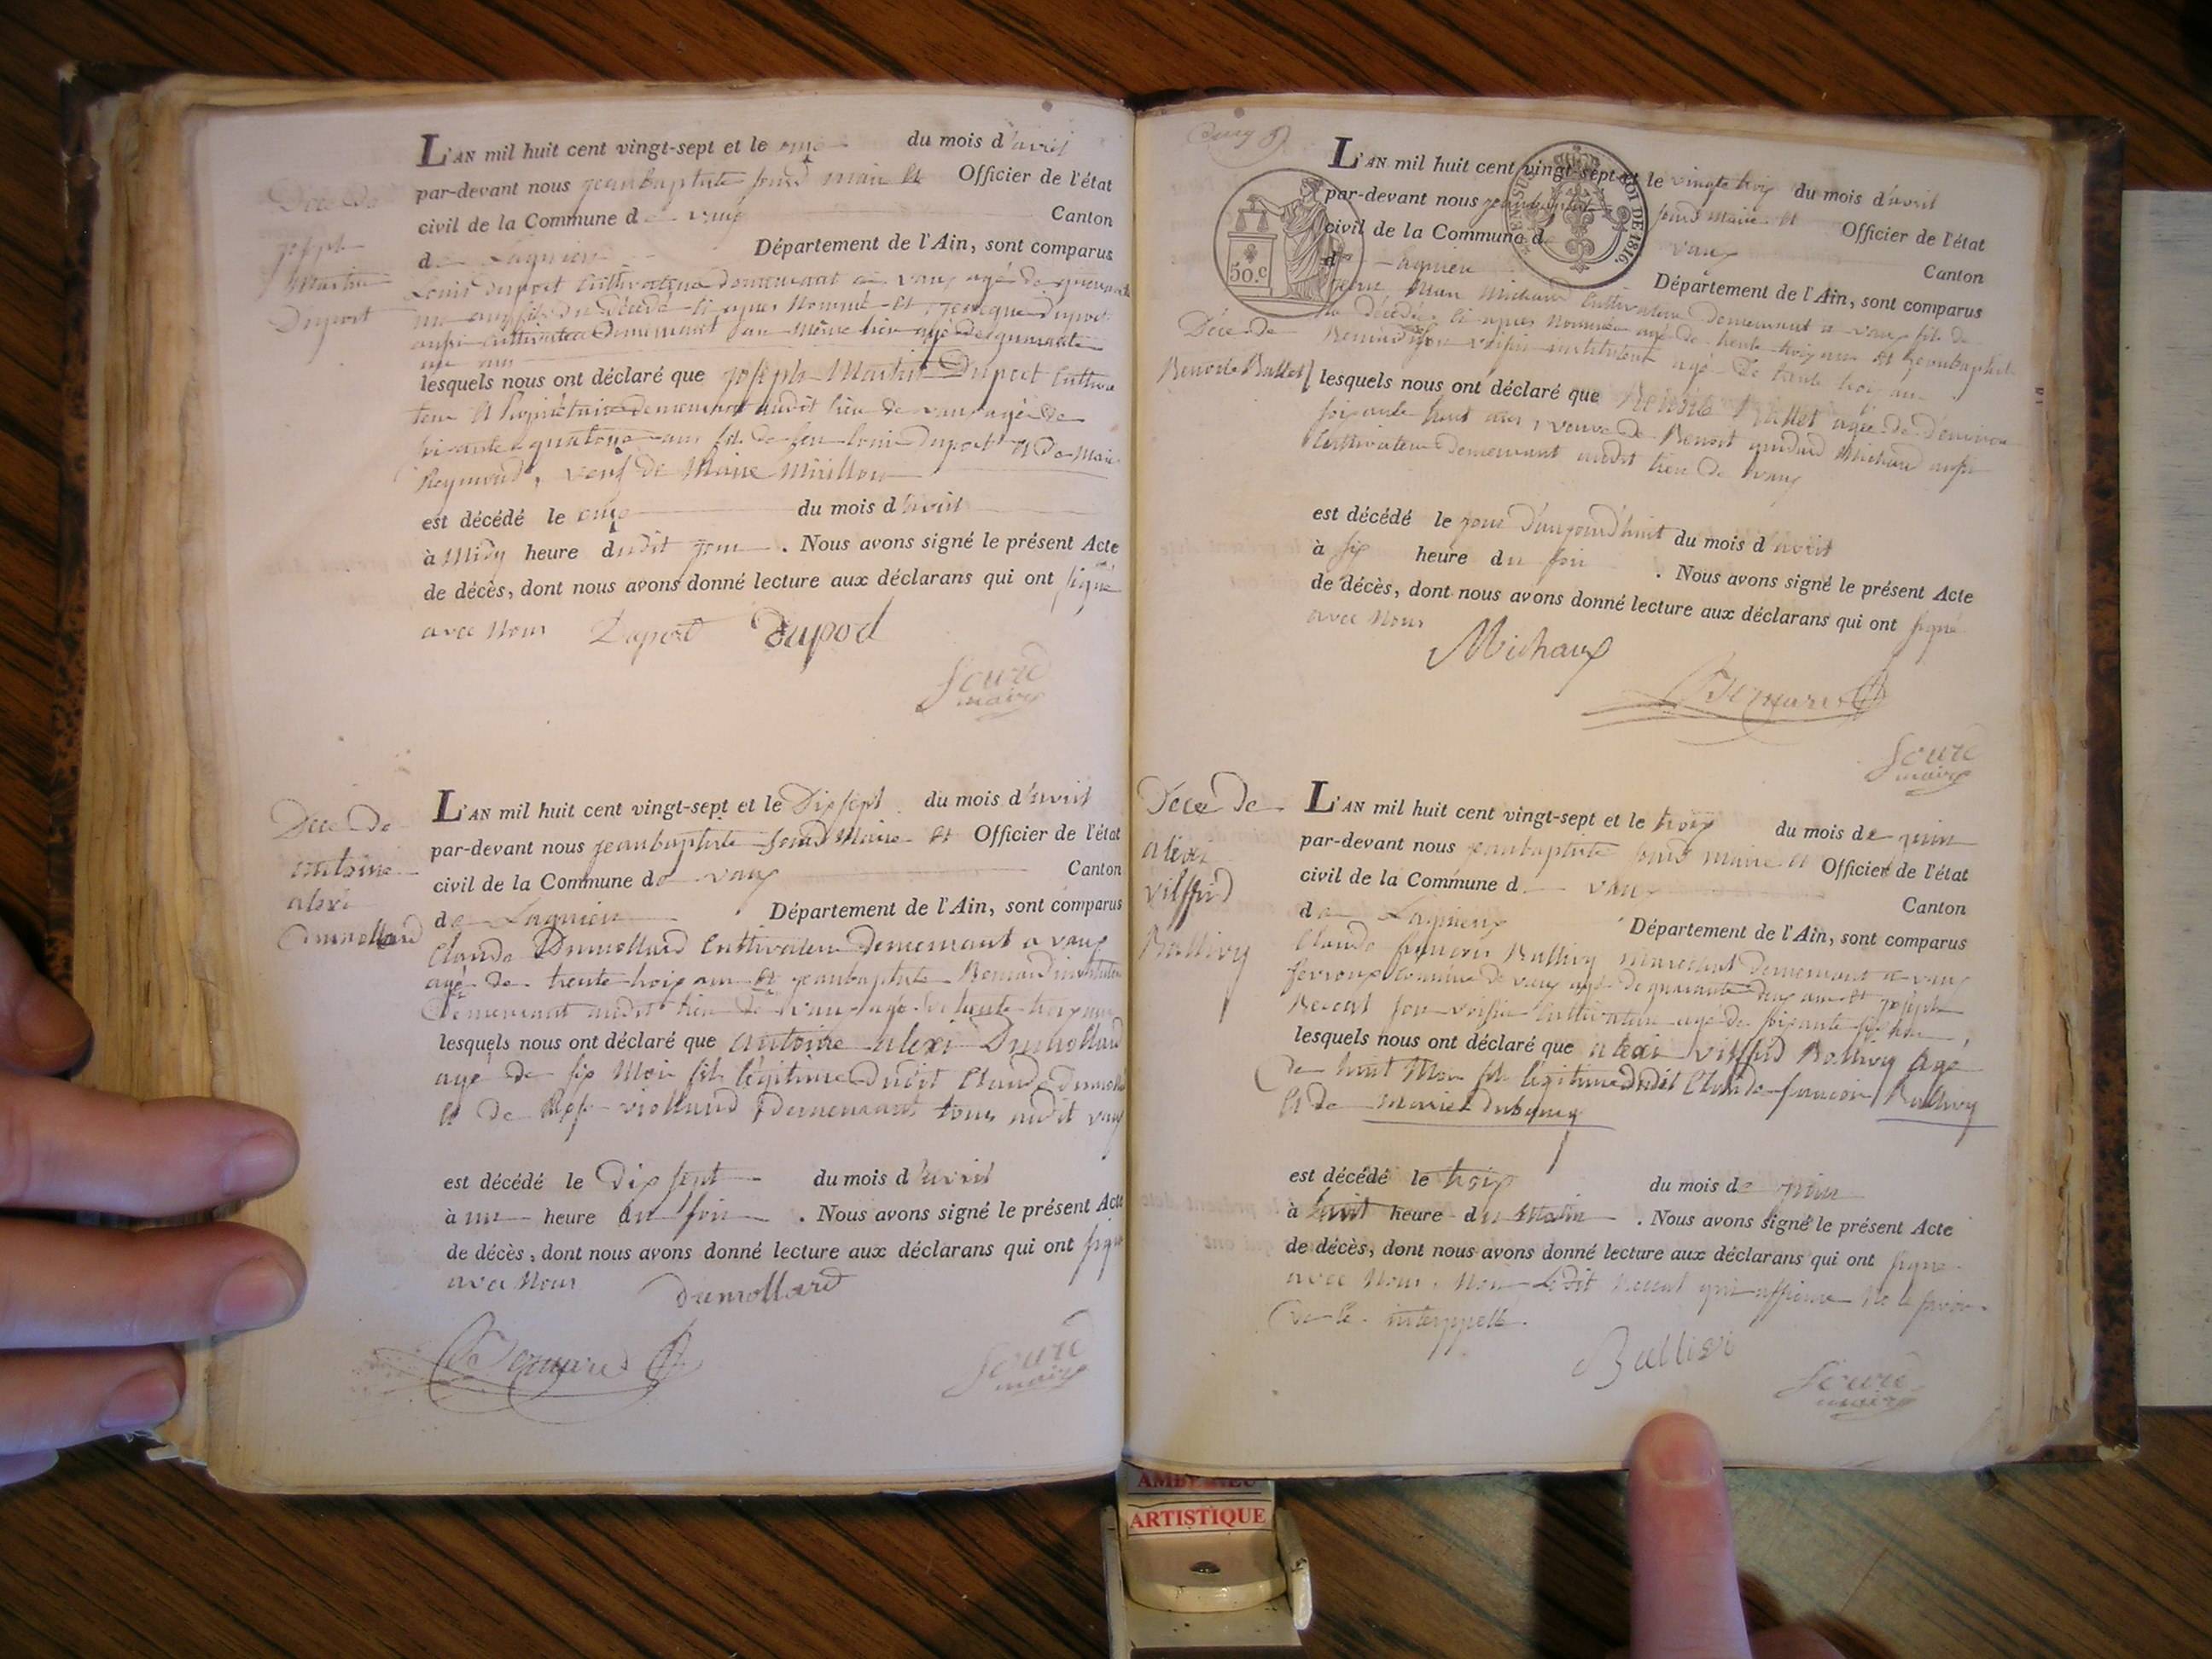 Décè de
joseph
Martin
Duport
L'AN mil huit cent vingt-sept et le onze du mois d'avril
par-devant nous jeanbaptiste fourd maire et Officier de l'état
civil de la Commune de vaux Canton
de Lagnieu Département de l'Ain, sont comparus
Louis duport Cultivateur demeurant a vaux agé de
ans fils du décédé ci apres nommé et duport
aussi cultivateur demeurant au même lieu agé de quarante
un ans
lesquels nous ont déclaré que joseph Martin Duport Cultiva
teur et Propriétaire demeurant audit lieu de vaux agé de
soixante quatorze ans fils de feu louis duport et de Marie
Reymond, veuf de Marie Mirillon
est décédé le onze du mois d'avril
à Midy heure dudit jour. Nous avons signé le présent Acte
de décès, dont nous avons donné lecture aux déclarans qui ont signé
avec Nous Duport Dupord
fourd
maire
Décè de
antoine
alexi
Dumollard
L'AN mil huit cent vingt-sept et le Dix sept du mois d'avril
par-devant nous jeanbaptiste fourd Maire et Officier de l'état
civil de la Commune de vaux Canton
de Lagnieu Département de l'Ain, sont comparus
Claude Dumollard Cultivateur demeurant a vaux
agé de trente trois ans et jeanbaptiste Bernard instituteur
Demeurant audit lieu de vaux agé de trente trois ans
lesquels nous ont déclaré que antoine alexi Dumollard
agé de six Mois fils légitime dudit Claude dumollard
et de viollaud Demeurant tous audit vaux
est décédé le Dix sept du mois d'avril
à une heure du soir. Nous avons signé le présent Acte
de décès, dont nous avons donné lecture aux déclarans qui ont signé
avec Nous dumollard
Bernard
fourd
maire
50.c
ROI DE 1816.
L'AN mil huit cent vingt-sept et le vingte trois du mois d'avril
par-devant nous jeanbaptiste fourd Maire et Officier de l'état
civil de la Commune de vaux Canton
de Lagnieu Département de l'Ain, sont comparus
Michaud Cultivateur demeurant a vaux fils de
Décè de
Benoite Ballet
la décédée ci apres nommée agé de trente trois ans et jeanbaptiste
Bernard son voisin instituteur agé de trante trois ans
lesquels nous ont déclaré que Benoite Ballet agée de d'environ
soixante huit ans veuve de Benoit Michaud aussi
Cultivateur demeurant audit lieu de vaux
est décédé le jour d'aujourd'huit du mois d'avril
à six heure du soir. Nous avons signé le présent Acte
de décès, dont nous avons donné lecture aux déclarans qui ont signé
avec Nous
Michaux
Bernard
fourd
maire
Décè de
alexi
vilffrid
Ballivy
L'AN mil huit cent vingt-sept et le trois du mois de juin
par-devant nous jeanbaptiste fourd maire et Officier de l'état
civil de la Commune de vaux Canton
de Lagnieu Département de l'Ain, sont comparus
Claude françois Ballivy marechal demeurant a vaux
fevroux Commune de vaux agé de quarante deux ans et joseph
son voisin Cultivateur agé de soixante
lesquels nous ont déclaré que alexi vilffrid Ballivy agé
de huit Mois fils légitime dudit Claude françois Ballivy
et de Mariee dubourg
est décédé le trois du mois de juin
à huit heure du Matin. Nous avons signé le présent Acte
de décès, dont nous avons donné lecture aux déclarans qui ont signé
avec Nous. Non Ledit qui affirme Ne le savoir
de ce interppellé.
Ballivi
fourd
maire
ARTISTIQUE